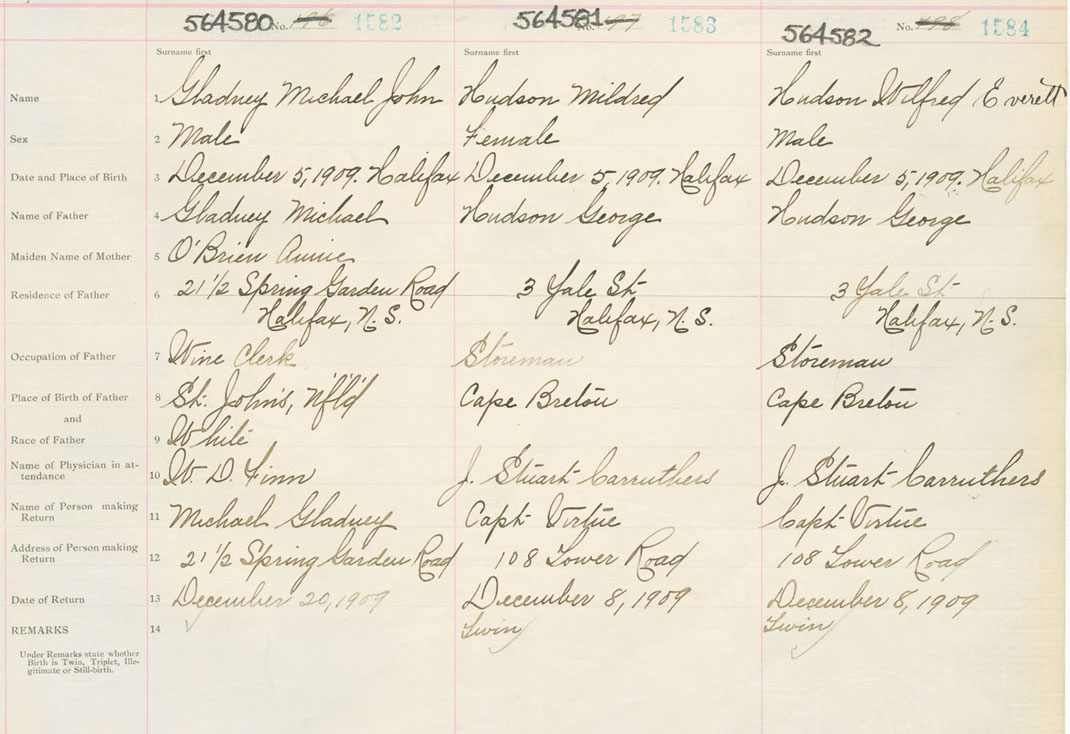 564580 No. 96 1582 564581 No. 97 1583 564582 No. 498 1584
Surname first Surname first Surname first
Name 1 Gladney Michael John Hudson Mildred Hudson Wilfred Everett
Sex 2 Male Female Male
Date and Place of Birth 3 December 5, 1909. Halifax December 5, 1909. Halifax December 5, 1909. Halifax
Name of Father 4 Gladney Michael Hudson George Hudson George
Maiden Name of Mother 5 O'Brien Annie
Residence of Father 6 21 1/2 Spring Garden Road 3 Yale St. 3 Yale St.
Halifax, N.S. Halifax, N.S. Halifax, N.S.
Occupation of Father 7 Wine Clerk Storeman Storeman
Place of Birth of Father 8 St. John's, N'f'l'd Cape Breton Cape Breton
and
Race of Father 9 White
Name of Physician in at-
tendance 10 W. D. Finn J. Stuart Carruthers J. Stuart Carruthers
Name of Person making
Return 11 Michael Gladney Capt. Virtue Capt. Virtue
Address of Person making
Return 12 21 1/2 Spring Garden Road 108 Lower Road 108 Lower Road
Date of Return 13 December 20, 1909 December 8, 1909 December 8, 1909
REMARKS 14 Twin Twin
Under Remarks state whether
Birth is Twin, Triplet, Ille-
gitimate or Still-birth.